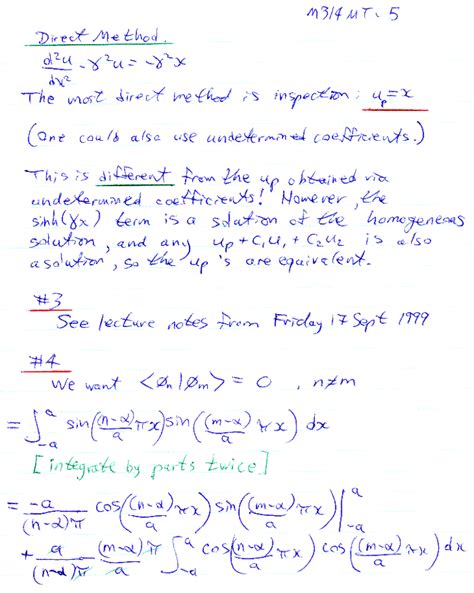 M314 MT. 5
Direct Method.
d²u/dx² - γ²u = -γ²x
The most direct method is inspection: u_p = x
(One could also use undetermined coefficients.)
This is different from the u_p obtained via
undetermined coefficients! However, the
sinh(γx) term is a solution of the homogeneous
solution, and any u_p + C₁u₁ + C₂u₂ is also
a solution, so the u_p's are equivalent.
#3
See lecture notes from Friday 17 Sept 1999
#4
We want <Ø_n|Ø_m> = 0 , n≠m
= ∫_{-a}^{a} sin((n-α)/a πx) sin((m-α)/a πx) dx
[integrate by parts twice]
= -a/((n-α)π) cos((n-α)/a πx) sin((m-α)/a πx) |_{-a}^{a}
+ a/((n-α)π) (m-α)π/a ∫_{-a}^{a} cos((n-α)/a πx) cos((m-α)/a πx) dx